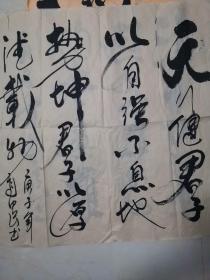 天行健君子
以自强不息地
势坤君子以厚
德载物 庚子年